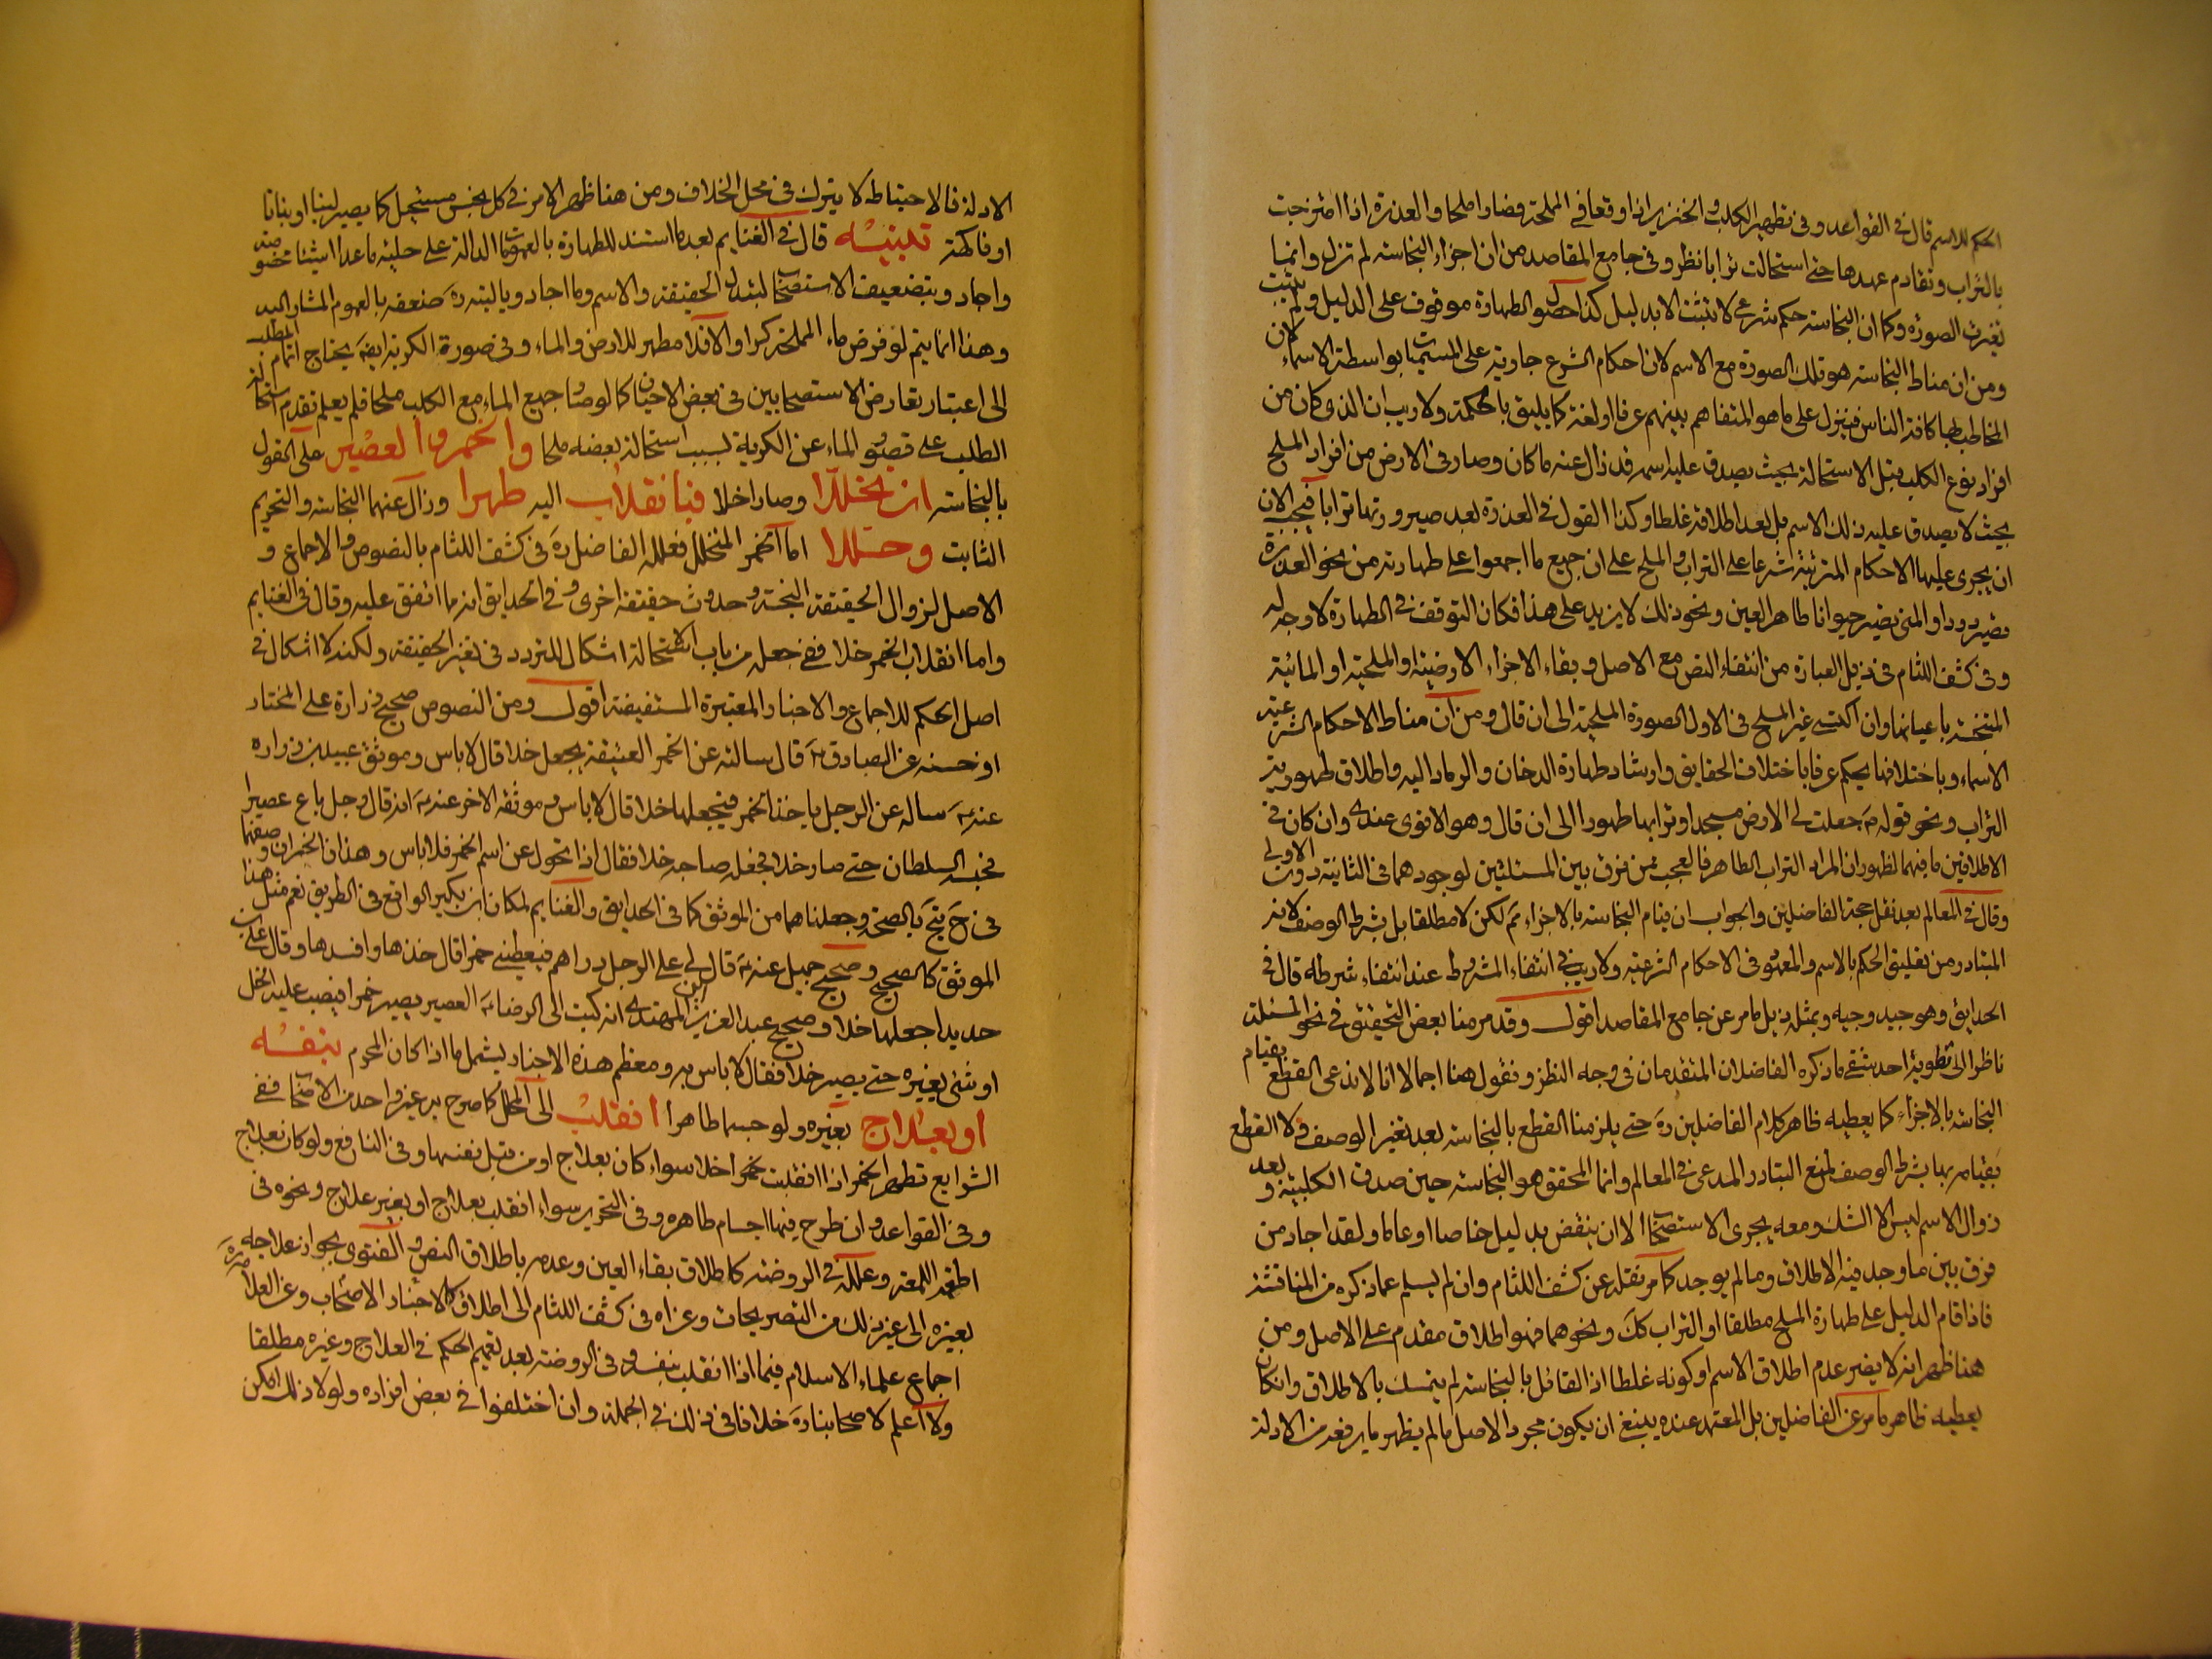 الحكم للاسم قال في القواعد وفي تطهير الكلب والخنزير اذا وقعا في المملحة فصارا ملحا والعذرة اذا امتزجت
بالتراب وتقادم عهدها حتى استحالت ترابا نظر وفي جامع المقاصد من ان اجزاء النجاسة لم تزل وانما
تغيرت الصورة وكما ان النجاسة حكم شرعي لا تثبت الا بدليل كذا حصول الطهارة موقوف على الدليل ولم يثبت
ومن ان مناط النجاسة هو تلك الصورة مع الاسم لان احكام الشرع جارية على المسميات بواسطة الاسماء لان
المخاطب بها كافة الناس فينزل على ما هو المتفاهم بينهم عرفا او لغة كما يليق بالحكمة ولا ريب ان الذي كان من
افراد نوع الكلب قبل الاستحالة بحيث يصدق عليه اسمه قد زال عنه ما كان وصار في الارض من افراد الملح
بحيث لا يصدق عليه ذلك الاسم بل يعد اطلاقه غلطا وكذا القول في العذرة بعد صيرورتها ترابا فيجب الان
ان يجري عليها الاحكام المترتبة شرعا على التراب والملح على ان جميع ما اجمعوا على طهارته من نحو العذرة
تصير دودا والمني تصير حيوانا طاهر العين ونحو ذلك لا يزيد على هذا فكان التوقف في الطهارة لا وجه له
وفي كشف اللثام في ذيل العبارة من انتفاء النص مع الاصل وبقاء الاجزاء الارضية او الملحية او المائية
المتنجسة باعيانها وان اكتسى غير الملح في الاول الصورة الملحية الى ان قال ومن ان مناط الاحكام الشرعية
الاسماء وباختلافها يحكم عرفا باختلاف الحقايق وارشاد طهارة الدخان والرماد اليه واطلاق طهورية
التراب ونحو قوله ص جعلت لي الارض مسجدا وترابها طهورا الى ان قال وهو الاقوى عندي وان كان في
الاطلاقين ما فيهما لظهور ان المراد التراب الطاهر فالعجب ممن فرق بين المسئلتين لوجودهما في الثانية دون الاولى
وقال في المعالم بعد نقل حجة الفاضلين والجواب ان قيام النجاسة بالاجزاء مم لكن لا مطلقا بل بشرط الوصف لانه
المتبادر من تعليق الحكم بالاسم والمعهود في الاحكام الشرعية ولا ريب في انتفاء المشروط عند انتفاء شرطه قال في
الحدايق وهو جيد وجيه وبمثله ذيل ما مر عن جامع المقاصد اقول وقد مر منا بعض التحقيق في نحو المسئلة
ناظرا الى تطويبه احد شقي ما ذكره الفاضلان المتقدمان في وجه النظر ونقول هنا اجمالا انا لا ندعى القطع بقيام
النجاسة بالاجزاء كما يعطيه ظاهر كلام الفاضلين ره حتى يلزمنا القطع بالنجاسة بعد تغير الوصف ولا القطع
بقيامه بها بشرط الوصف لمنع التبادر المدعى في المعالم وانما المحقق هو النجاسة حين صدق الكلبية وبعد
زوال الاسم ليس الا الشك ومعه يجري الاستصحاب الا ان ينقض بدليل خاصا او عاما ولقد اجاد من
فرق بين ما وجد فيه الاطلاق وما لم يوجد كما مر نقله عن كشف اللثام وان لم يسلم عما ذكره من المناقشة
فاذا قام الدليل على طهارة الملح مطلقا او التراب كك ونحوهما فهو اطلاق مقدم على الاصل ومن
هنا ظهر انه لا يضير عدم اطلاق الاسم او كونه غلطا اذ القائل بالنجاسة لم يتمسك بالاطلاق وان كان
يعطيه ظاهر ما مر عن الفاضلين بل المعتمد عنده ينبغي ان يكون مجرد الاصل ما لم يظهر ما يرفعه من الادلة
الادلة فالاحتياط لا يترك في محل الخلاف ومن هنا ظهر الامر في كل نجس مستحيل كما يصير لبنا او نباتا
او فاكهة تنبيه قال في الغنايم بعد ما استند للطهارة بالعمومات الدالة على حلية ما عدا اشياء مخصوصة
واجاد وبتضعيف الاستصحاب لتبدل الحقيقة والاسم وما اجاد ويا ليته ره ضعفه بالعموم المشار اليه
وهذا انما يتم لو فرض ماء المملحة كرا والا فلا مطهر للارض والماء وفي صورة الكرية ايضا يحتاج اتمام المطلب
الى اعتبار تعارض الاستصحابين في بعض الاحيان كما لو صار جميع الماء مع الكلب ملحا فلم يعلم تقدم استحالة
الطلب على قصور الماء عن الكرية لسبب استحالة بعضه ملحا والخمر والعصير على القول
بالنجاسة ان تخللا وصارا خلا فبانقلاب اليه طهرا وزال عنهما النجاسة والتحريم
الثابت وحللا اما الخمر المتخلل فعلله الفاضل ره في كشف اللثام بالنصوص والاجماع و
الاصل لزوال الحقيقة النجسة وحدوث حقيقة اخرى وفي الحدايق انه ما اتفق عليه وقال في الغنايم
واما انقلاب الخمر خلا ففي جعله من باب الاستحالة اشكال للتردد في تغير الحقيقة ولكنه لا اشكال في
اصل الحكم للاجماع والاخبار المعتبرة المستفيضة اقول ومن النصوص صحيح زرارة على المختار
او حسنه عن الصادق ع قال سالته عن الخمر العتيقة يجعل خلا قال لا باس وموثق عبيد بن زراره
عنه ع ساله عن الرجل ياخذ الخمر فيجعلها خلا قال لا باس وموثقه الاخر عنه ع انه قال رجل باع عصيرا
فحبسه السلطان حتى صار خلا فجعله صاحبه خلا فقال اذا تحول عن اسم الخمر فلا باس وهذان الخبران وصفهما
في ح تج بالصحة وجعلناهما من الموثق كما في الحدايق والغنايم لمكان ابن بكير الواقع في الطريق نعم مثل هذا
الموثق كالصحيح وصحيح جميل عنه ع قال لي على الرجل دراهم فيعطيني خمرا قال خذها وافسدها وقال علي بن
حديد اجعلها خلا وصحيح عبد العزيز بن المهتدي انه كتبت الى الرضا ع العصير يصير خمرا فيصب عليه الخل
او شئ يغيره حتى يصير خلا فقال لا باس به ومعظم هذه الاخبار يشمل ما اذا كان المحرم بنفسه
او بعلاج بغيره ولو جسما طاهرا انقلب الى المحل كما صرح به غير واحد من الاصحاب ففي
الشرايع تطهر الخمر اذا انقلبت خمرا خلا سواء كان بعلاج او من قبل نفسها وفي النافع ولو كان بعلاج
وفي القواعد وان طرح فيها اجسام طاهره وفي التحرير سواء انقلب بعلاج او بغير علاج ونحوه في
اطعمة اللمعة وعلله في الروضة كاطلاق بقاء العين وعدمه باطلاق النص والفتوى بجواز علاجه
بغيره الى غير ذلك من التصريحات وعزاه في كشف اللثام الى اطلاق الاخبار الاصحاب وعن العلامة ره
اجماع علماء الاسلام فيما اذا انقلب بنفسه وفي الروضة بعد تعميم الحكم في العلاج وغيره مطلقا
ولا اعلم لاصحابنا ره خلافا في ذلك في الجملة وان اختلفوا في بعض افراده ولولا ذلك امكن